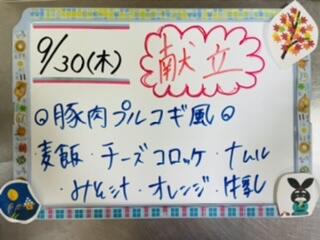 9/30(木)
献立
◎豚肉プルコギ風◎
・麦飯・チーズコロッケ・ナムル
・みそ汁・オレンジ・牛乳